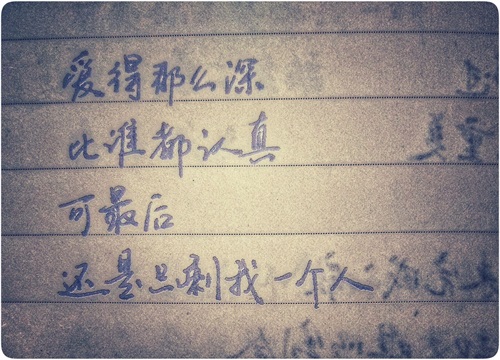 爱得那么深
比谁都认真
可最后
还是只剩我一个人